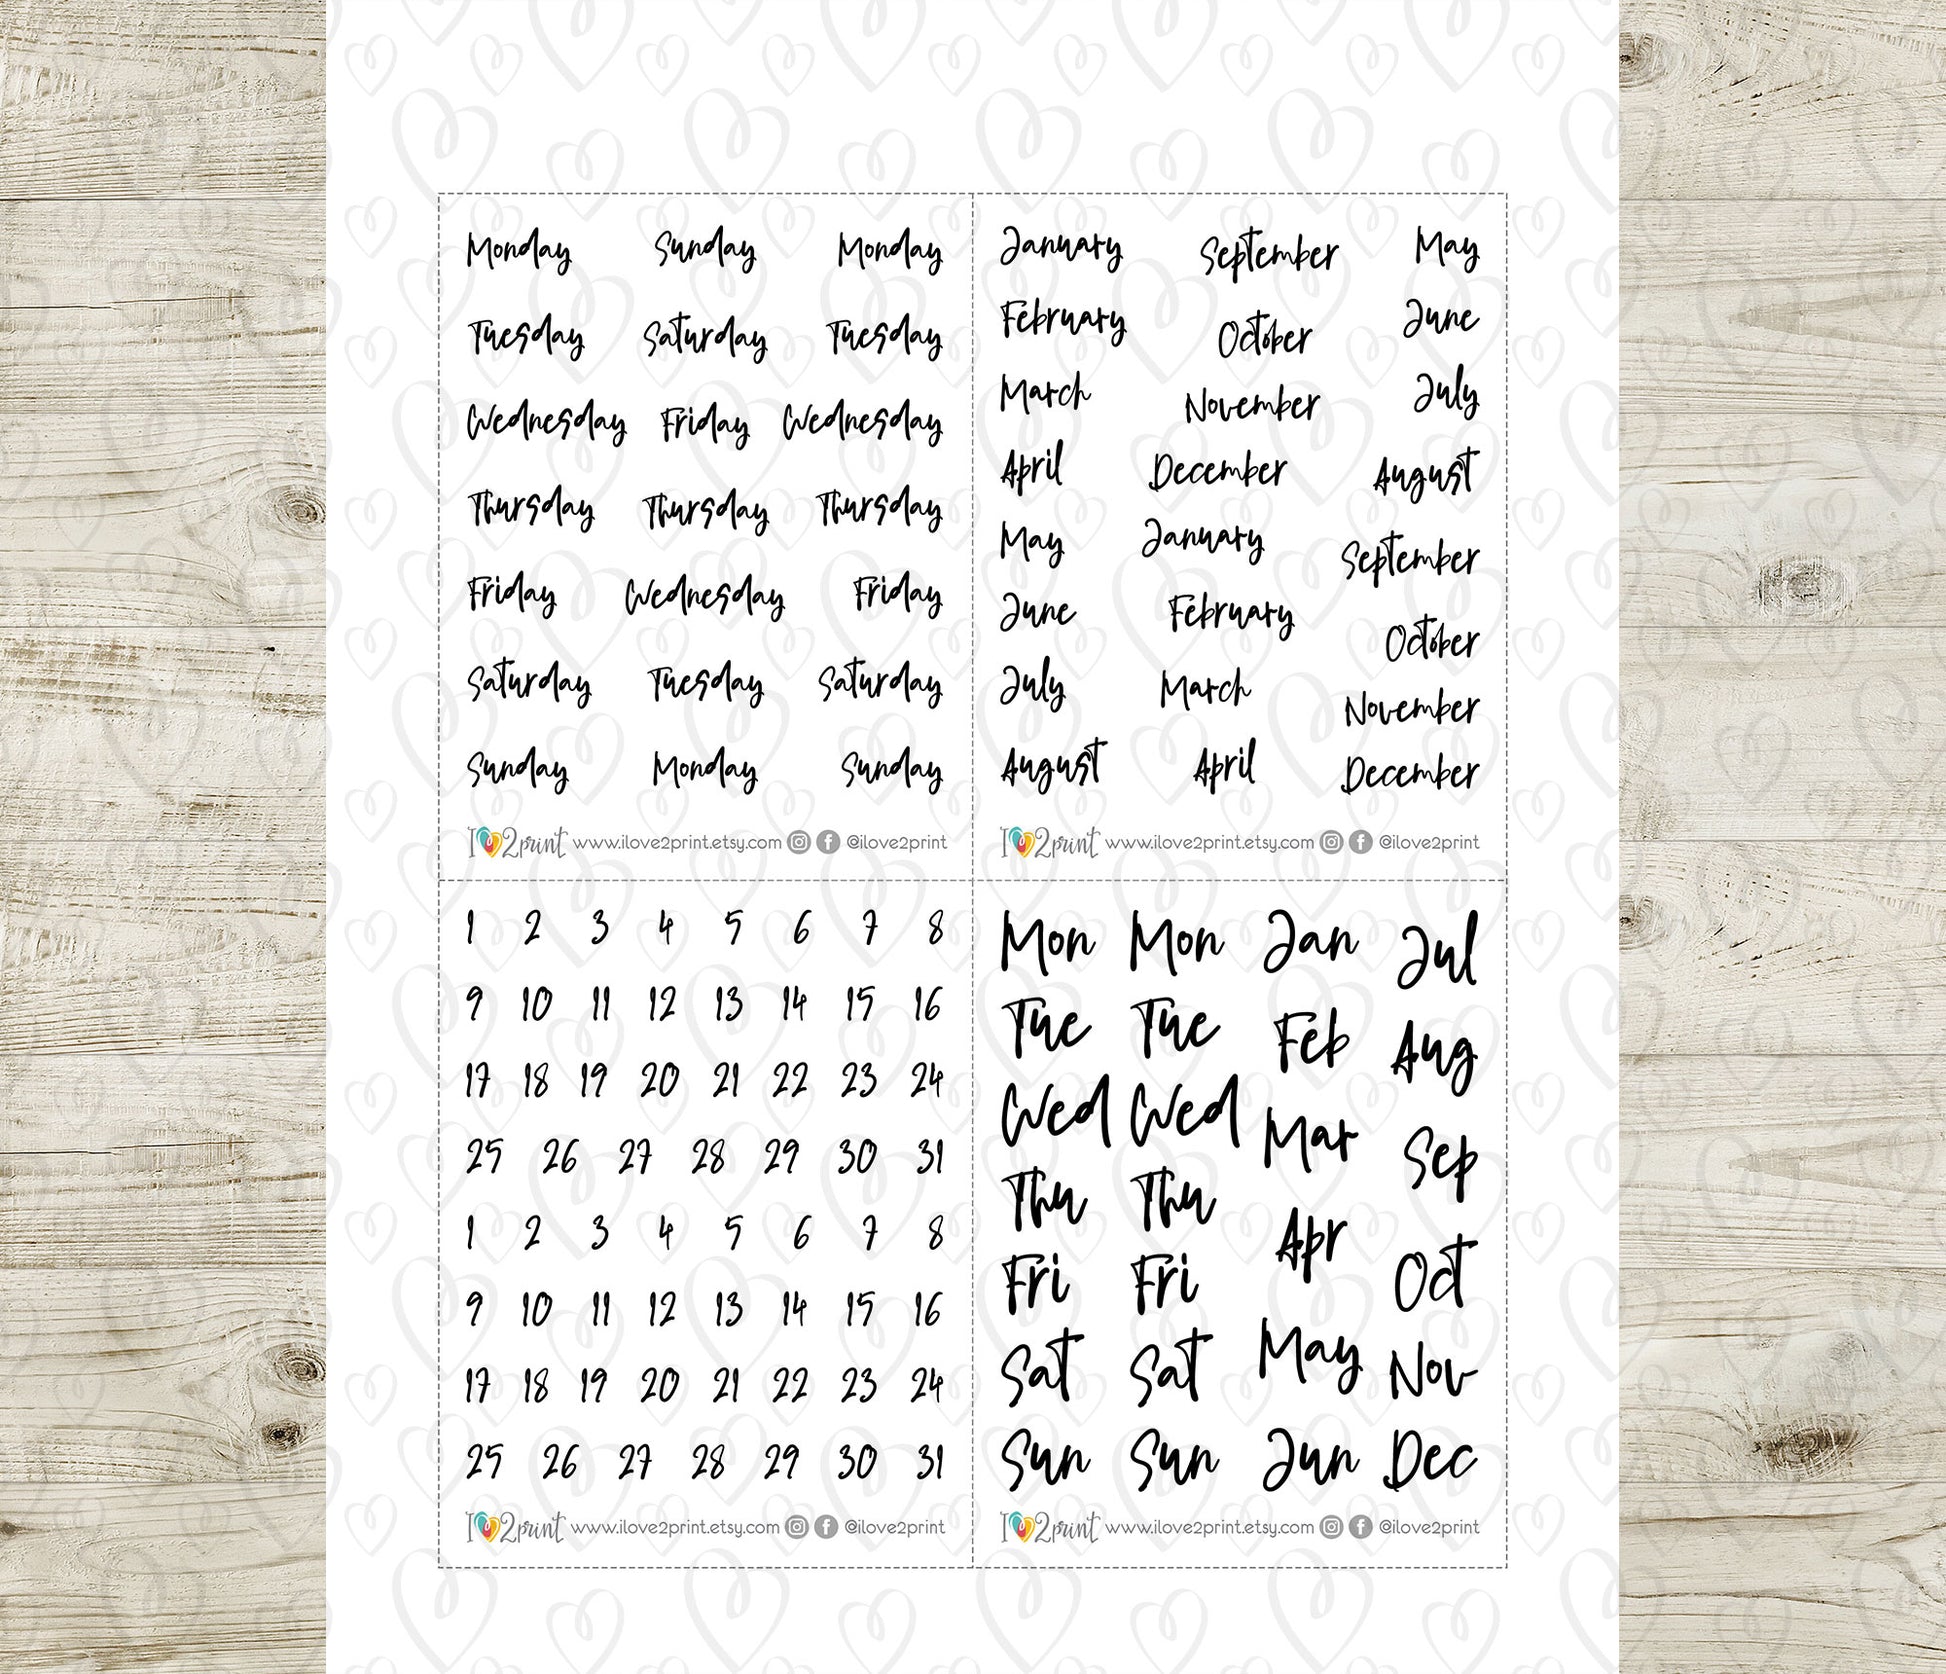 Monday Sunday Monday
Tuesday Saturday Tuesday
Wednesday Friday Wednesday
Thursday Thursday Thursday
Friday Wednesday Friday
Saturday Tuesday Saturday
Sunday Monday Sunday
I 2print www.ilove2print.etsy.com @ilove2print
January September May
February October June
March November July
April December August
May January September
June February October
July March November
August April December
I 2print www.ilove2print.etsy.com @ilove2print
1 2 3 4 5 6 7 8
9 10 11 12 13 14 15 16
17 18 19 20 21 22 23 24
25 26 27 28 29 30 31
1 2 3 4 5 6 7 8
9 10 11 12 13 14 15 16
17 18 19 20 21 22 23 24
25 26 27 28 29 30 31
I 2print www.ilove2print.etsy.com @ilove2print
Mon Mon Jan Jul
Tue Tue Feb Aug
Wed Wed Mar Sep
Thu Thu Apr Oct
Fri Fri May Nov
Sat Sat Jun Dec
Sun Sun
I 2print www.ilove2print.etsy.com @ilove2print